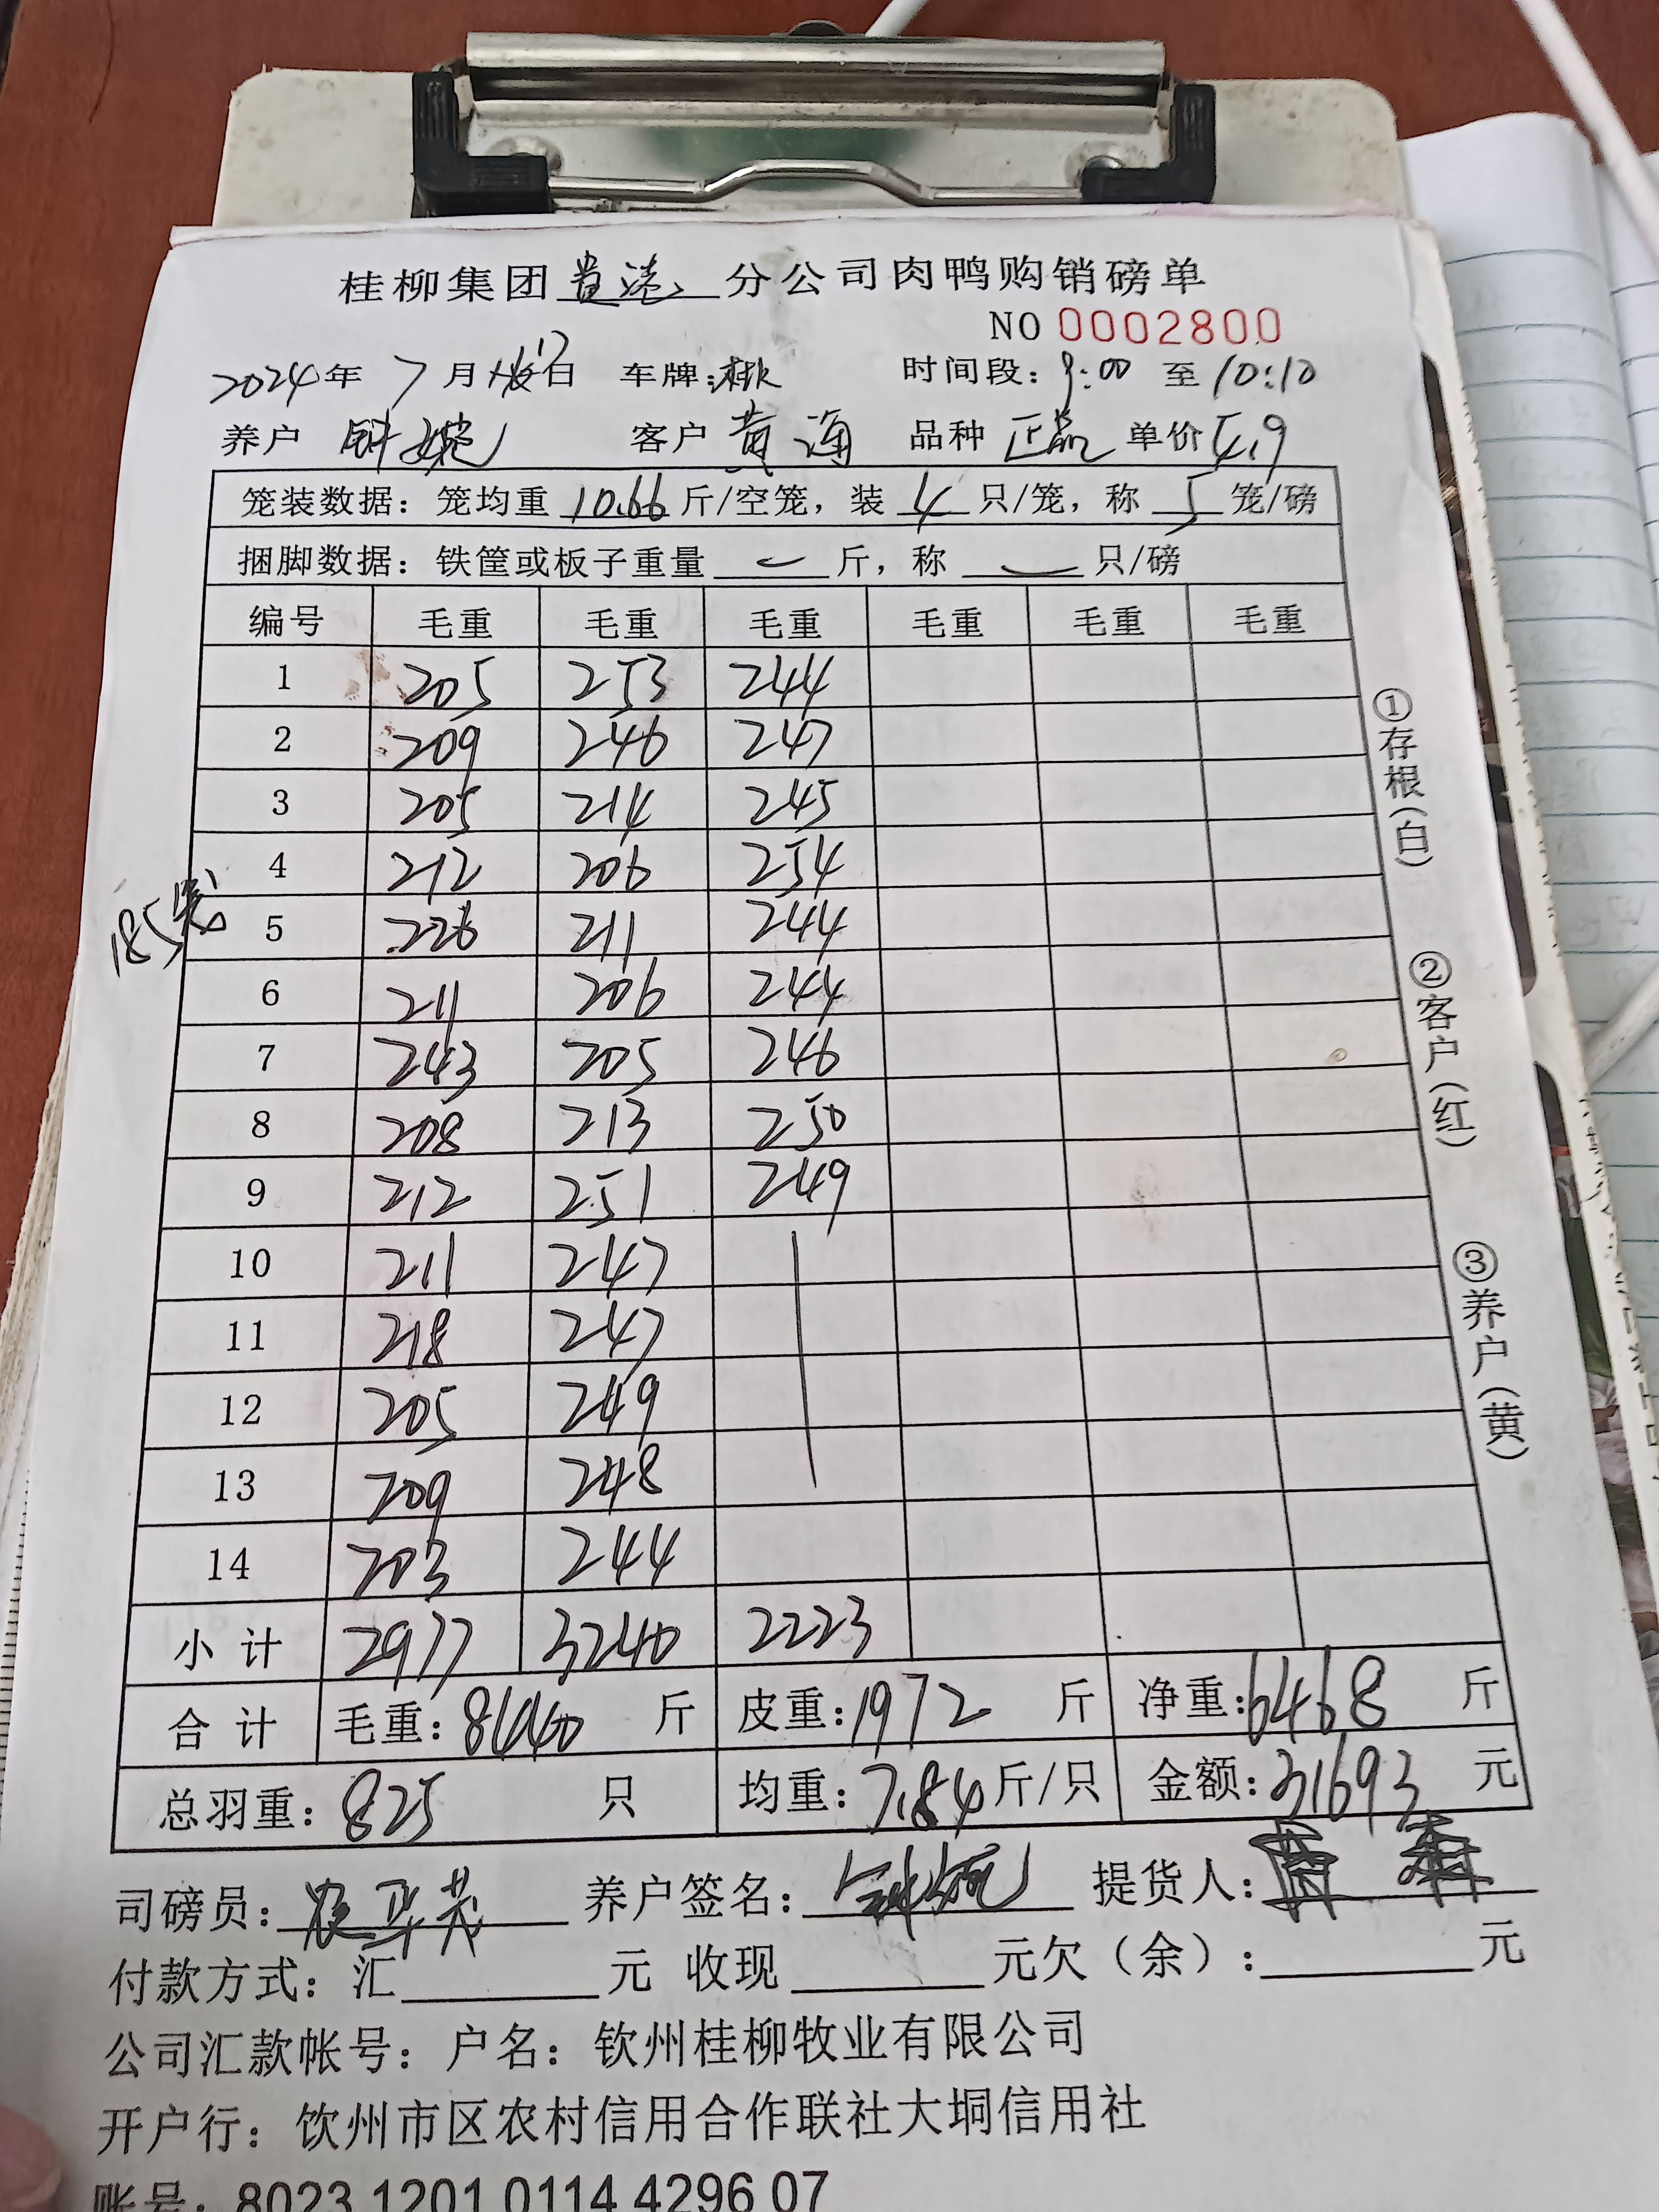 桂柳集团贵港分公司肉鸭购销磅单
NO 0002800
2024年 7月 12日 车牌: 时间段: 9:00 至 10:10
养户 钟婉 客户 黄海 品种 正品 单价 4.9
笼装数据: 笼均重 10.66 斤/空笼, 装 4 只/笼, 称 5 笼/磅
捆脚数据: 铁筐或板子重量 斤, 称 只/磅
编号 毛重 毛重 毛重 毛重 毛重 毛重
1 205 253 244
2 209 246 247
3 205 214 245
4 212 206 254
185
5 226 211 244
6 211 206 244
7 243 205 246
8 208 213 250
9 212 251 249
10 211 247
11 218 247
12 205 249
13 209 248
14 203 244
小计 2977 3240 2223
合计 毛重: 8440 斤 皮重: 1972 斤 净重: 6468 斤
总羽重: 825 只 均重: 7.84 斤/只 金额: 31693 元
司磅员: 养户签名: 钟婉 提货人:
付款方式: 汇 元 收现 元欠(余): 元
公司汇款帐号: 户名: 钦州桂柳牧业有限公司
开户行: 钦州市区农村信用合作联社大垌信用社
账号: 8023 1201 0114 4296 07
①存根(白)
②客户(红)
③养户(黄)